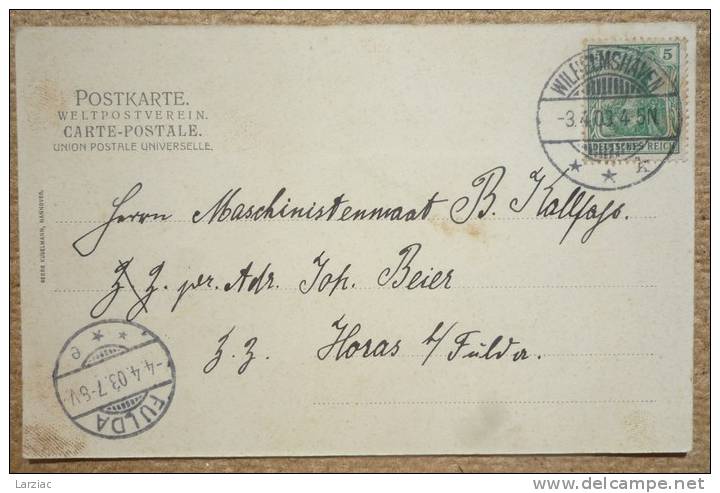 POSTKARTE.
WELTPOSTVEREIN.
CARTE-POSTALE.
UNION POSTALE UNIVERSELLE.
WILHELMSHAVEN
-3.4.03.4-5N
* * k
5
DEUTSCHES REICH
Herrn Maschinistenmaat B. Kallfass.
z. Z. pr. Adr. Joh. Beier
z. Z. Horas b/Fulda
HANNOVER.
FULDA
-4.4.03.7-8V.
* * e
Larziac
www.delcampe.net